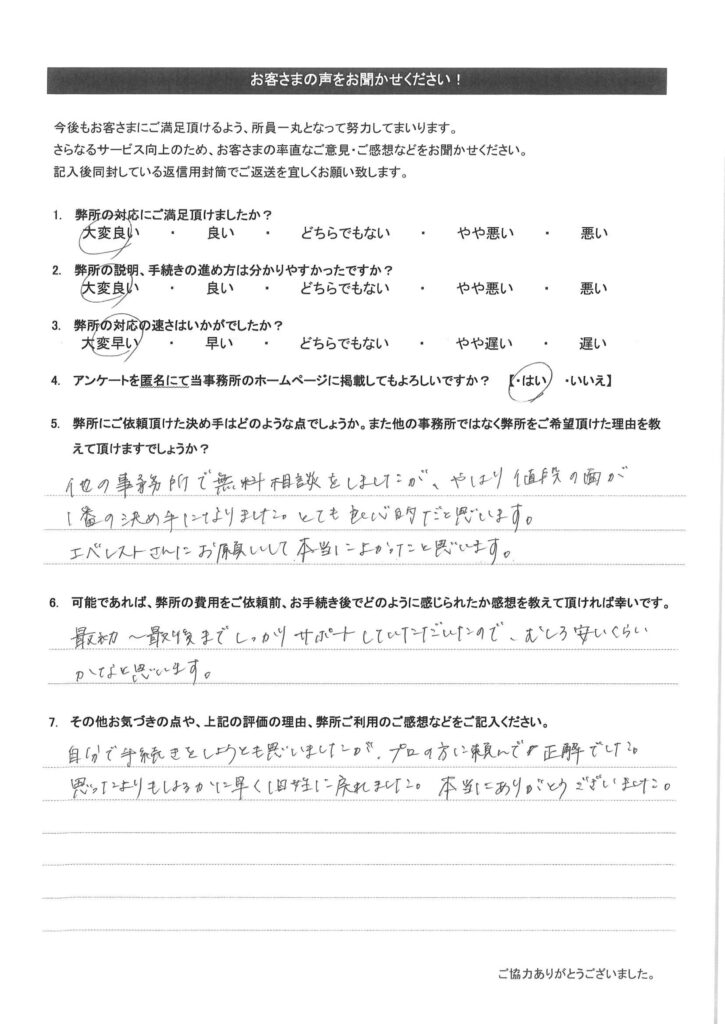 お客さまの声をお聞かせください！
今後もお客さまにご満足頂けるよう、所員一丸となって努力してまいります。
さらなるサービス向上のため、お客さまの率直なご意見・ご感想などをお聞かせください。
記入後同封している返信用封筒でご返送を宜しくお願い致します。
1. 弊所の対応にご満足頂けましたか？
大変良い ・ 良い ・ どちらでもない ・ やや悪い ・ 悪い
2. 弊所の説明、手続きの進め方は分かりやすかったですか？
大変良い ・ 良い ・ どちらでもない ・ やや悪い ・ 悪い
3. 弊所の対応の速さはいかがでしたか？
大変早い ・ 早い ・ どちらでもない ・ やや遅い ・ 遅い
4. アンケートを匿名にて当事務所のホームページに掲載してもよろしいですか？ 【・はい ・いいえ】
5. 弊所にご依頼頂けた決め手はどのような点でしょうか。また他の事務所ではなく弊所をご希望頂けた理由を教
えて頂けますでしょうか？
他の事務所で無料相談をしましたが、やはり値段の面が
1番の決め手になりました。とても良心的だと思います。
エベレストさんにお願いして本当によかったと思います。
6. 可能であれば、弊所の費用をご依頼前、お手続き後でどのように感じられたか感想を教えて頂ければ幸いです。
最初〜最後までしっかりサポートしていただいたので、むしろ安いくらい
かなと思います。
7. その他お気づきの点や、上記の評価の理由、弊所ご利用のご感想などをご記入ください。
自分で手続きをしようとも思いましたが、プロの方に頼んで正解でした。
思ったよりもはるかに早く旧姓に戻れました。本当にありがとうございました。
ご協力ありがとうございました。